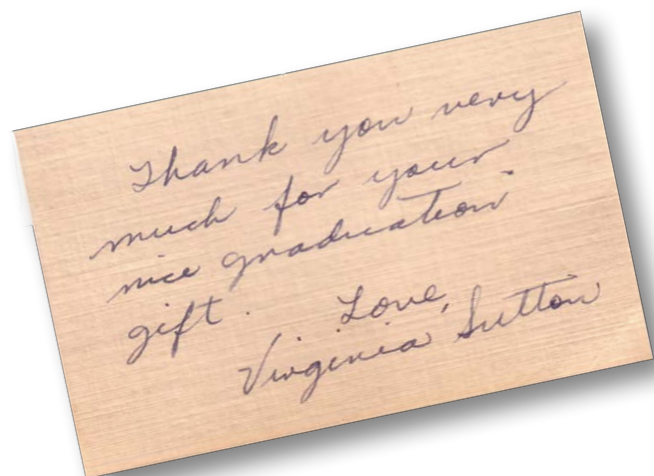 Thank you very
much for your
nice graduation
gift. Love,
Virginia Sutton